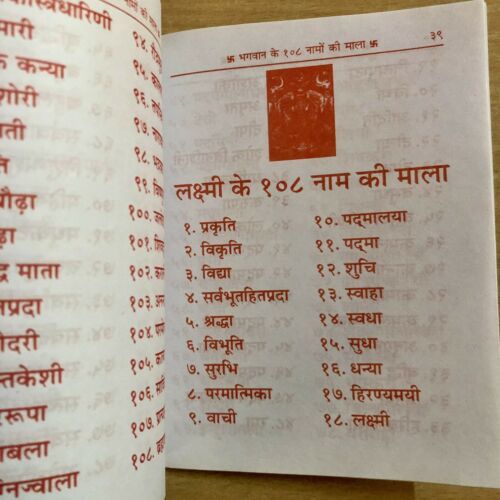 स्त्रधारिणी
मारी
कन्या
शोरी
ती
ति
प्रौढ़ा
ढ़ा
द्र माता
तप्रदा
ोदरी
तकेशी
रूपा
बला
नज्वाला
नामों की माला
९४.
९५.
९६.
९७.
९८.
९९.
१००.
१०१.
१०२.
१०३.
१०४.
१०५.
१०६.
१०७.
१०८.
卐 भगवान के १०८ नामों की माला 卐
३९
लक्ष्मी के १०८ नाम की माला
१. प्रकृति
२. विकृति
३. विद्या
४. सर्वभूतहितप्रदा
५. श्रद्धा
६. विभूति
७. सुरभि
८. परमात्मिका
९. वाची
१०. पद्मालया
११. पद्मा
१२. शुचि
१३. स्वाहा
१४. स्वधा
१५. सुधा
१६. धन्या
१७. हिरण्यमयी
१८. लक्ष्मी